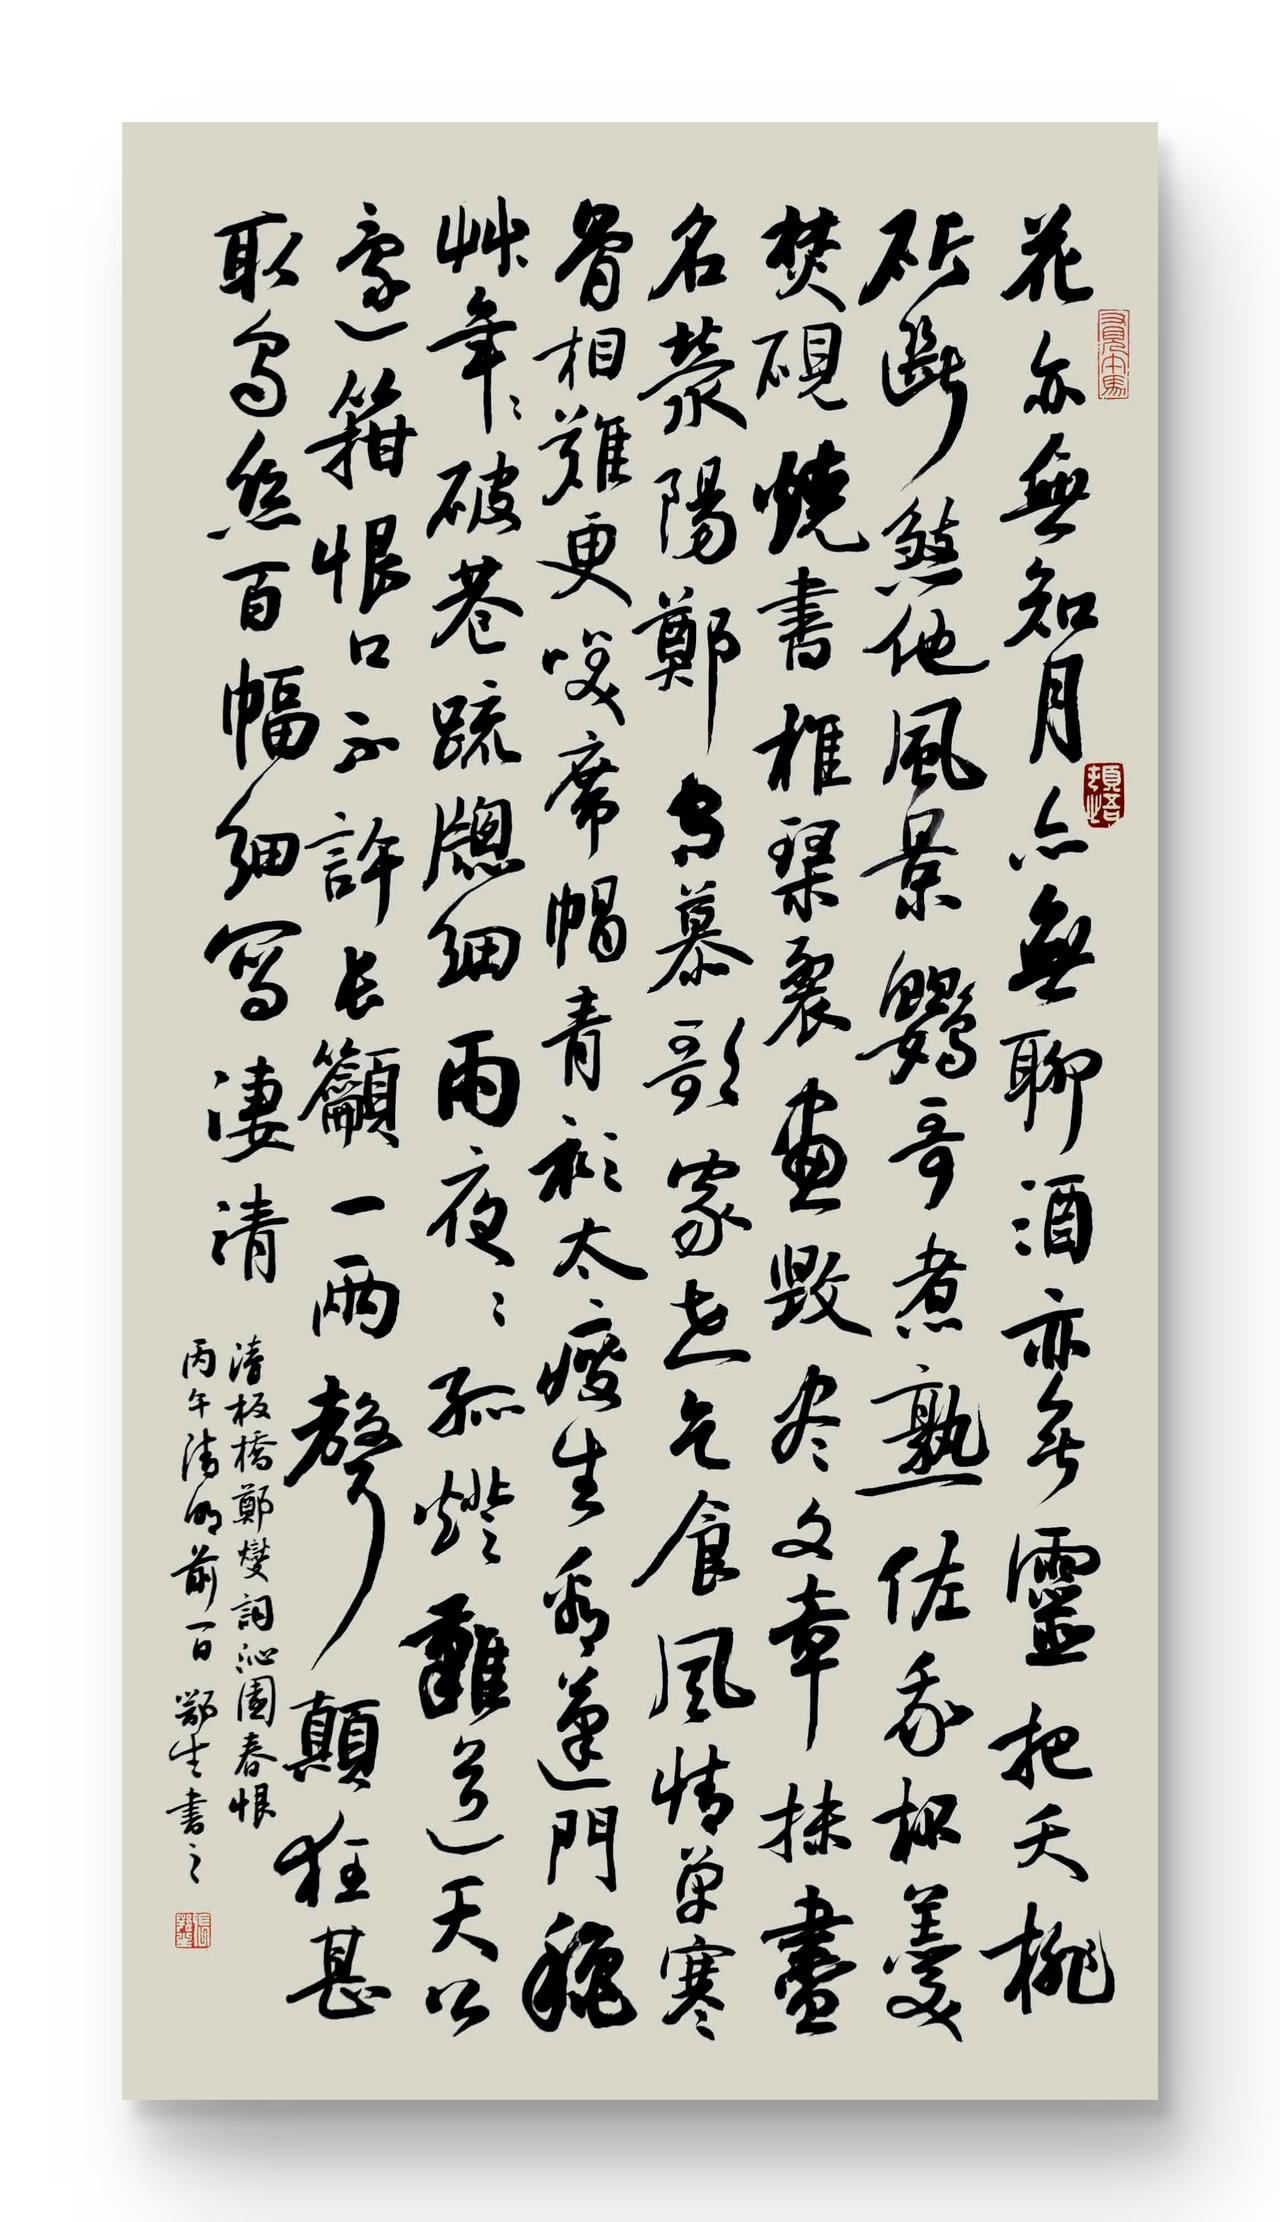 花亦無知月亦無聊酒亦無靈把夭桃
斫斷煞他風景鸚哥煮熟佐我杯羹
焚硯燒書椎琴裂畫毀尽文章抹盡
名滎陽鄭有慕歌家世乞食風情單寒
骨相難更笑席帽青衫太瘦生看蓬門穐
艸年〻破巷疏牕細雨夜〻孤燈難道天公
還箝恨口不許長籲一兩聲顛狂甚
取烏絲百幅細寫淒清
清板橋鄭燮詞沁園春恨
丙午清明前一日鄂生書之
頓悟